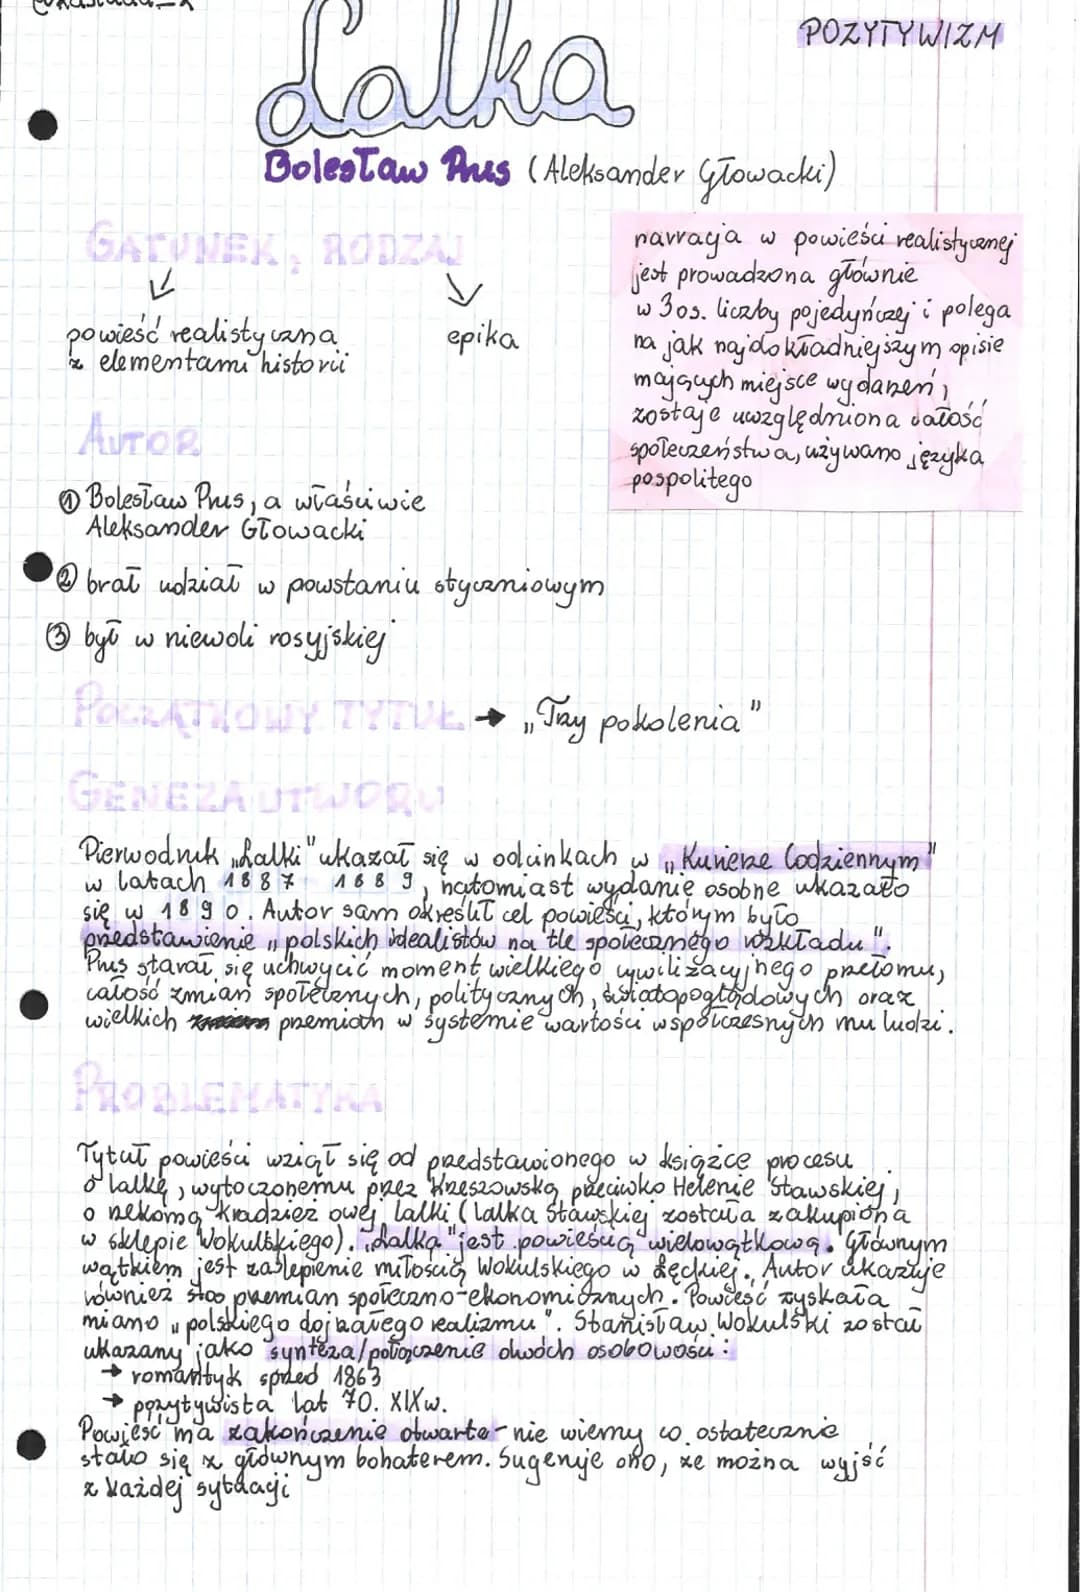 POZYTYWIZM
Lalka
Bolesław Prus (Aleksander Głowacki)
GATUNEK, RODZAJ
powieść realistyczna
z elementami historii
epika
narracja w powieści realistycznej
jest prowadzona głównie
w 3 os. liczby pojedyńczej i polega
na jak najdokładniejszym opisie
mających miejsce wydarzeń,
zostaje uwzględniona całość
społeczeństwa, używano języka
pospolitego
AUTOR
① Bolesław Prus, a właściwie
Aleksander Głowacki
② brał udział w powstaniu styczniowym
③ był w niewoli rosyjskiej
POCZĄTKOWY TYTUŁ → „Trzy pokolenia"
GENEZA UTWORU
Pierwodruk „Lalki" ukazał się w odcinkach w „Kurierze Codziennym"
w latach 1887 1889, natomiast wydanie osobne ukazało
się w 1890. Autor sam określił cel powieści, którym było
przedstawienie „polskich idealistów na tle społecznego rozkładu".
Prus starał się uchwycić moment wielkiego cywilizacyjnego przełomu,
całość zmian społecznych, politycznych, światopoglądowych oraz
wielkich przemian w systemie wartości współczesnych mu ludzi.
PROBLEMATYKA
Tytuł powieści wziął się od przedstawionego w książce procesu
o lalkę, wytoczonemu przez Krzeszowską przeciwko Helenie Stawskiej,
o rzekomą kradzież owej lalki (lalka Stawskiej została zakupiona
w sklepie Wokulskiego). „Lalka" jest powieścią wielowątkową. Głównym
wątkiem jest zaślepienie miłością Wokulskiego w Łęckiej. Autor ukazuje
również sto przemian społeczno-ekonomicznych. Powieść zyskała
miano „polskiego dojrzałego realizmu". Stanisław Wokulski został
ukazany jako synteza/połączenie dwóch osobowości:
→ romantyk sprzed 1863
→ pozytywista lat 70. XIX w.
Powieść ma zakończenie otwarte - nie wiemy co ostatecznie
stało się z głównym bohaterem. Sugeruje ono, że można wyjść
z każdej sytuacji